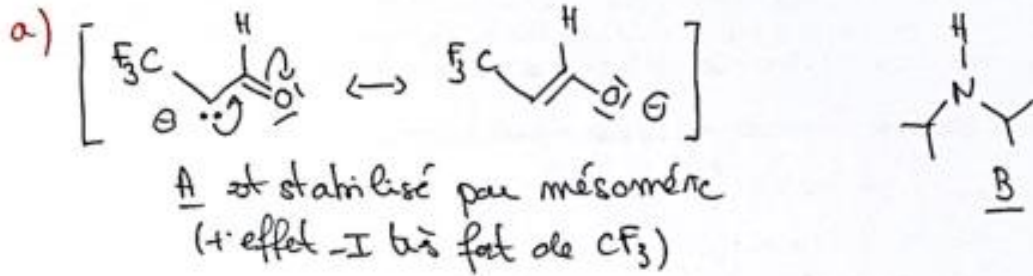 a)
H H H
F₃C O ↔ F₃C O ⊖ N
⊖
A est stabilisé par mésomérie B
(+ effet -I très fort de CF₃)